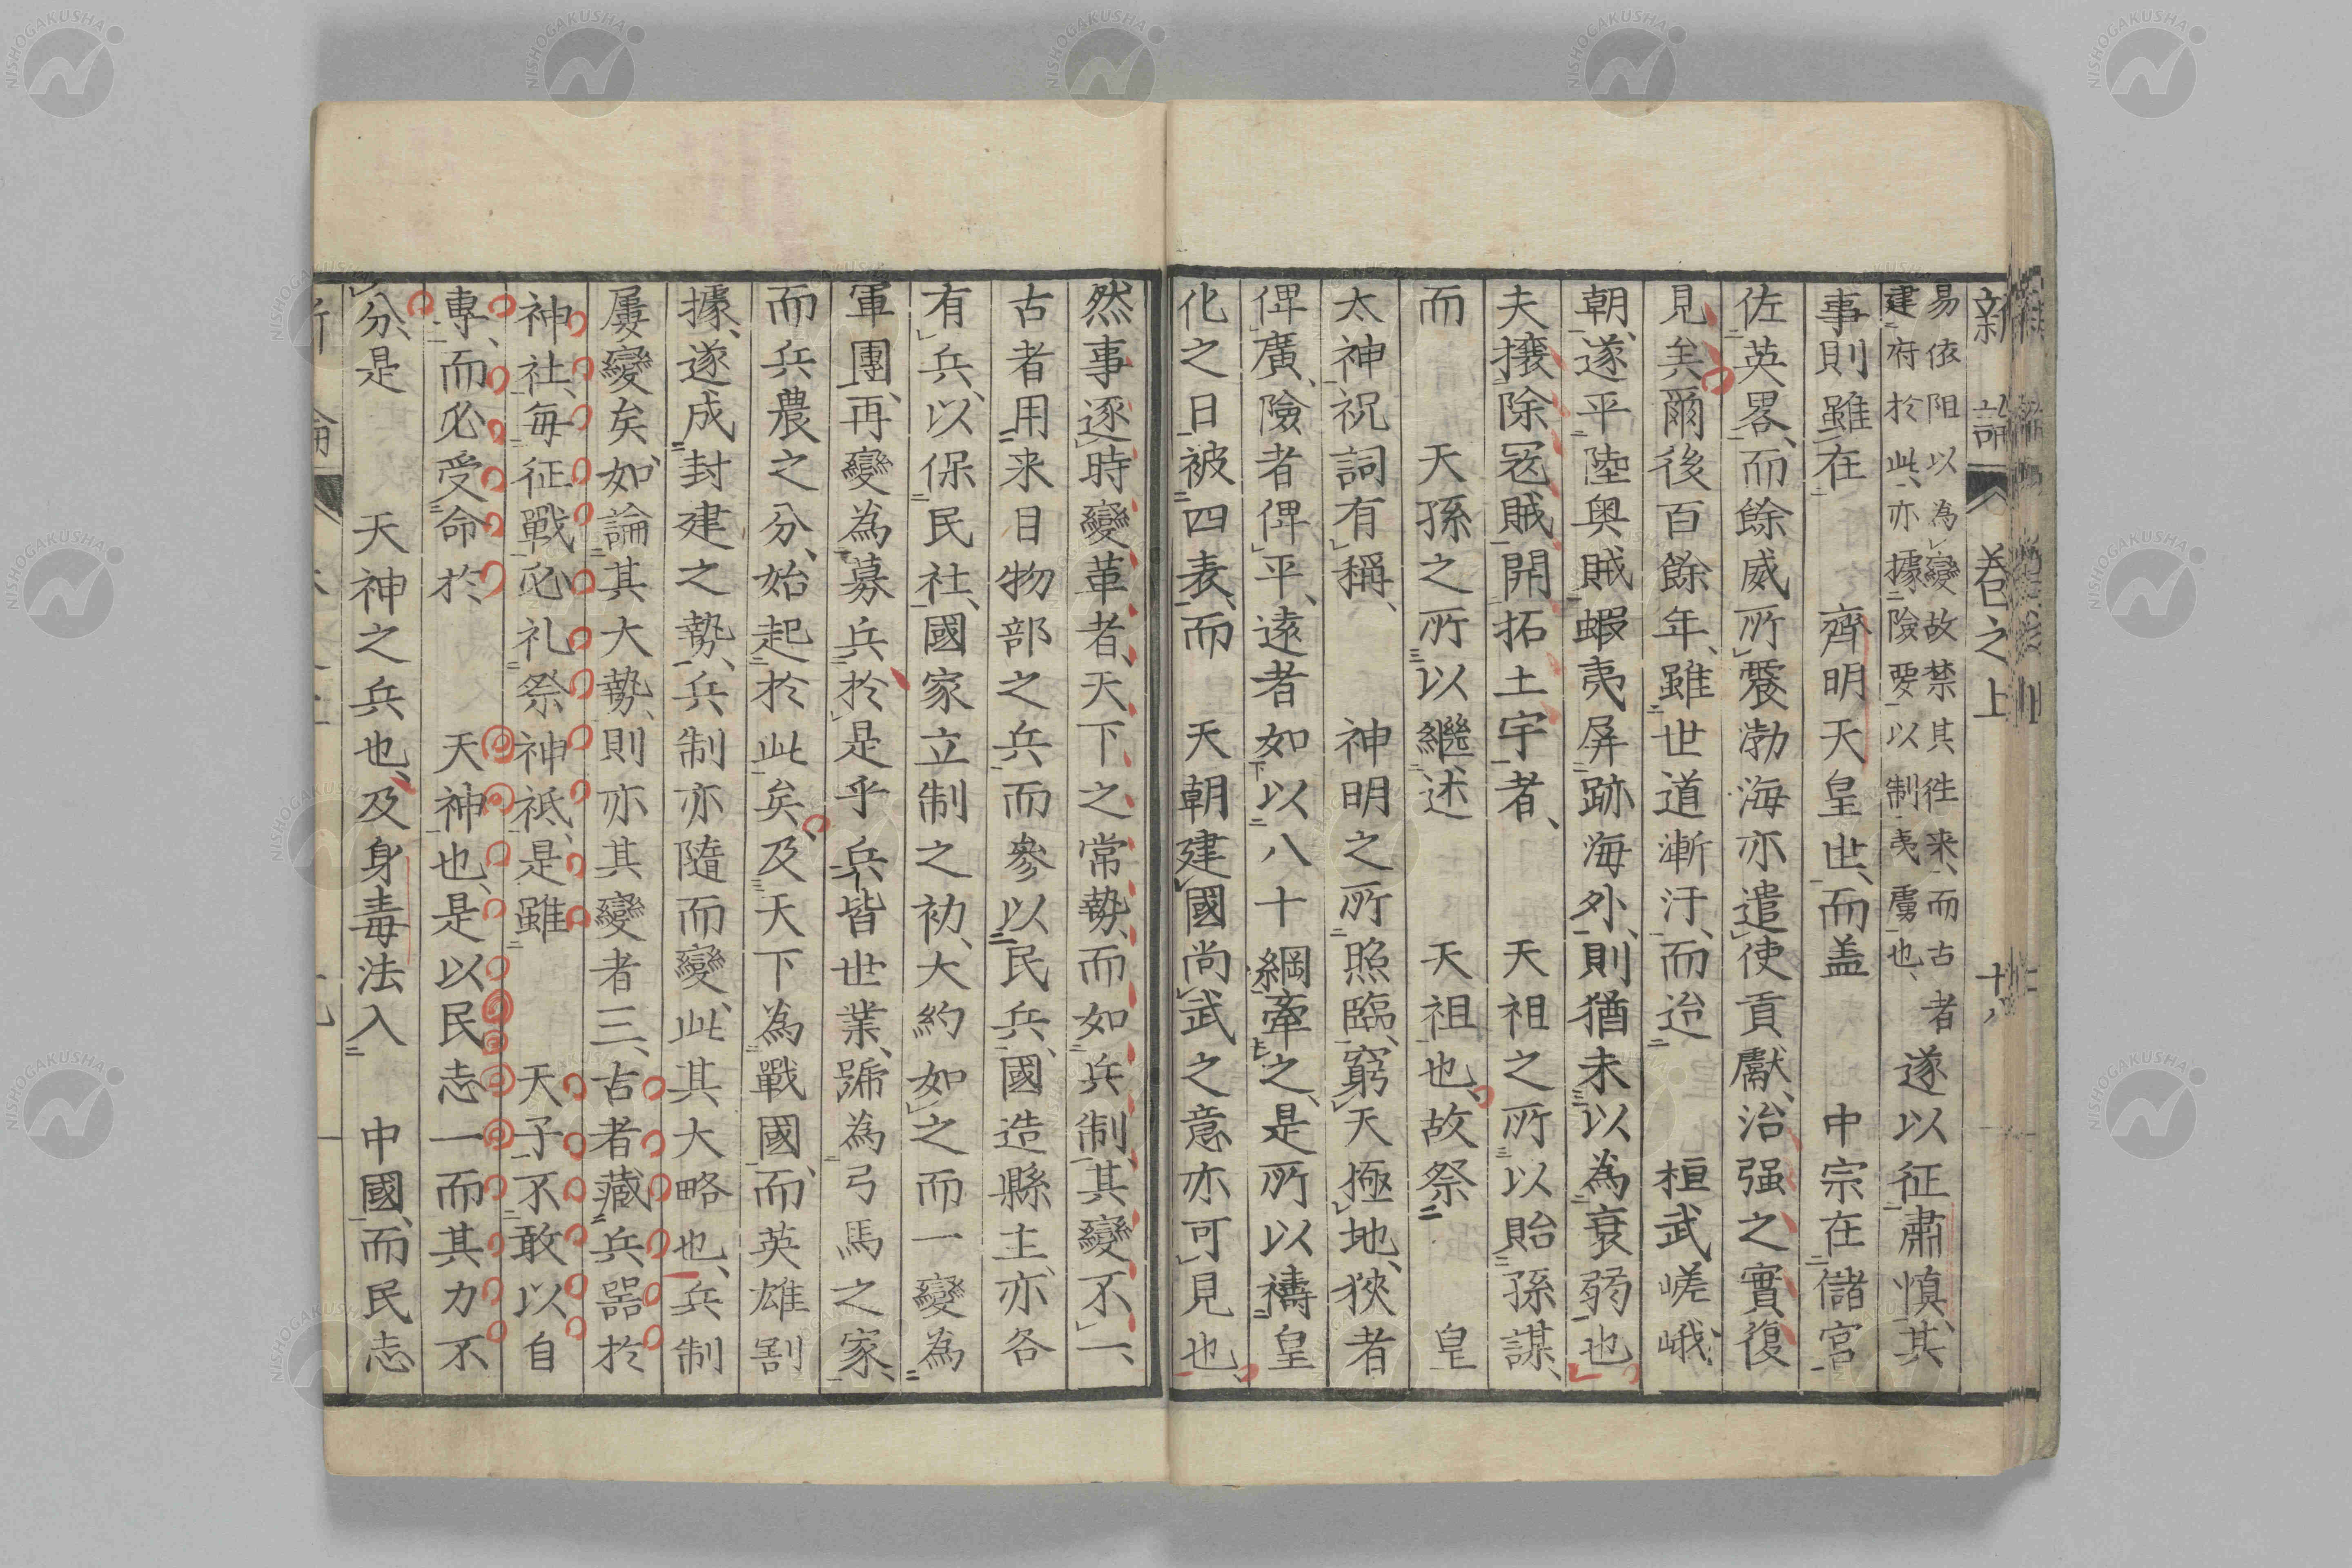 新論 卷之上 十八
易依阻以為變故禁其徃来、而古者
建府於此、亦據險要以制夷虜也、
遂以征肅慎、其
事則雖在 齊明天皇世、而盖 中宗在儲宮
佐英畧、而餘威所震渤海亦遣使貢獻、治强之實復
見矣爾後百餘年、雖世道漸汙、而迨 桓武嵯峨
朝、遂平陸奥賊蝦夷屏跡海外、則猶未以為衰弱也
夫攘除冦賊開拓土宇者、 天祖之所以貽孫謀、
而 天孫之所以繼述 天祖也、故祭 皇
太神祝詞有稱、 神明之所照臨、窮天極地、狹者
俾廣、險者俾平、遠者如以八十綱牽之、是所以禱皇
化之日被四表、而 天朝建國尚武之意亦可見也
然事逐時變革者、天下之常勢、而如兵制、其變不一、
古者用来目物部之兵而參以民兵、國造縣主、亦各
有兵、以保民社、國家立制之初、大約如之而一變為
軍團、再變為募兵於是乎兵皆世業、號為弓馬之家、
而兵農之分、始起於此矣、及天下為戰國、而英雄割
據、遂成封建之勢、兵制亦隨而變、此其大略也、兵制
屢變矣如論其大勢、則亦其變者三、古者藏兵器於
神社、毎征戰必礼祭神祇、是雖 天子不敢以自
專、而必受命於 天神也、是以民志一而其力不
分、是 天神之兵也、及身毒法入 中國、而民志